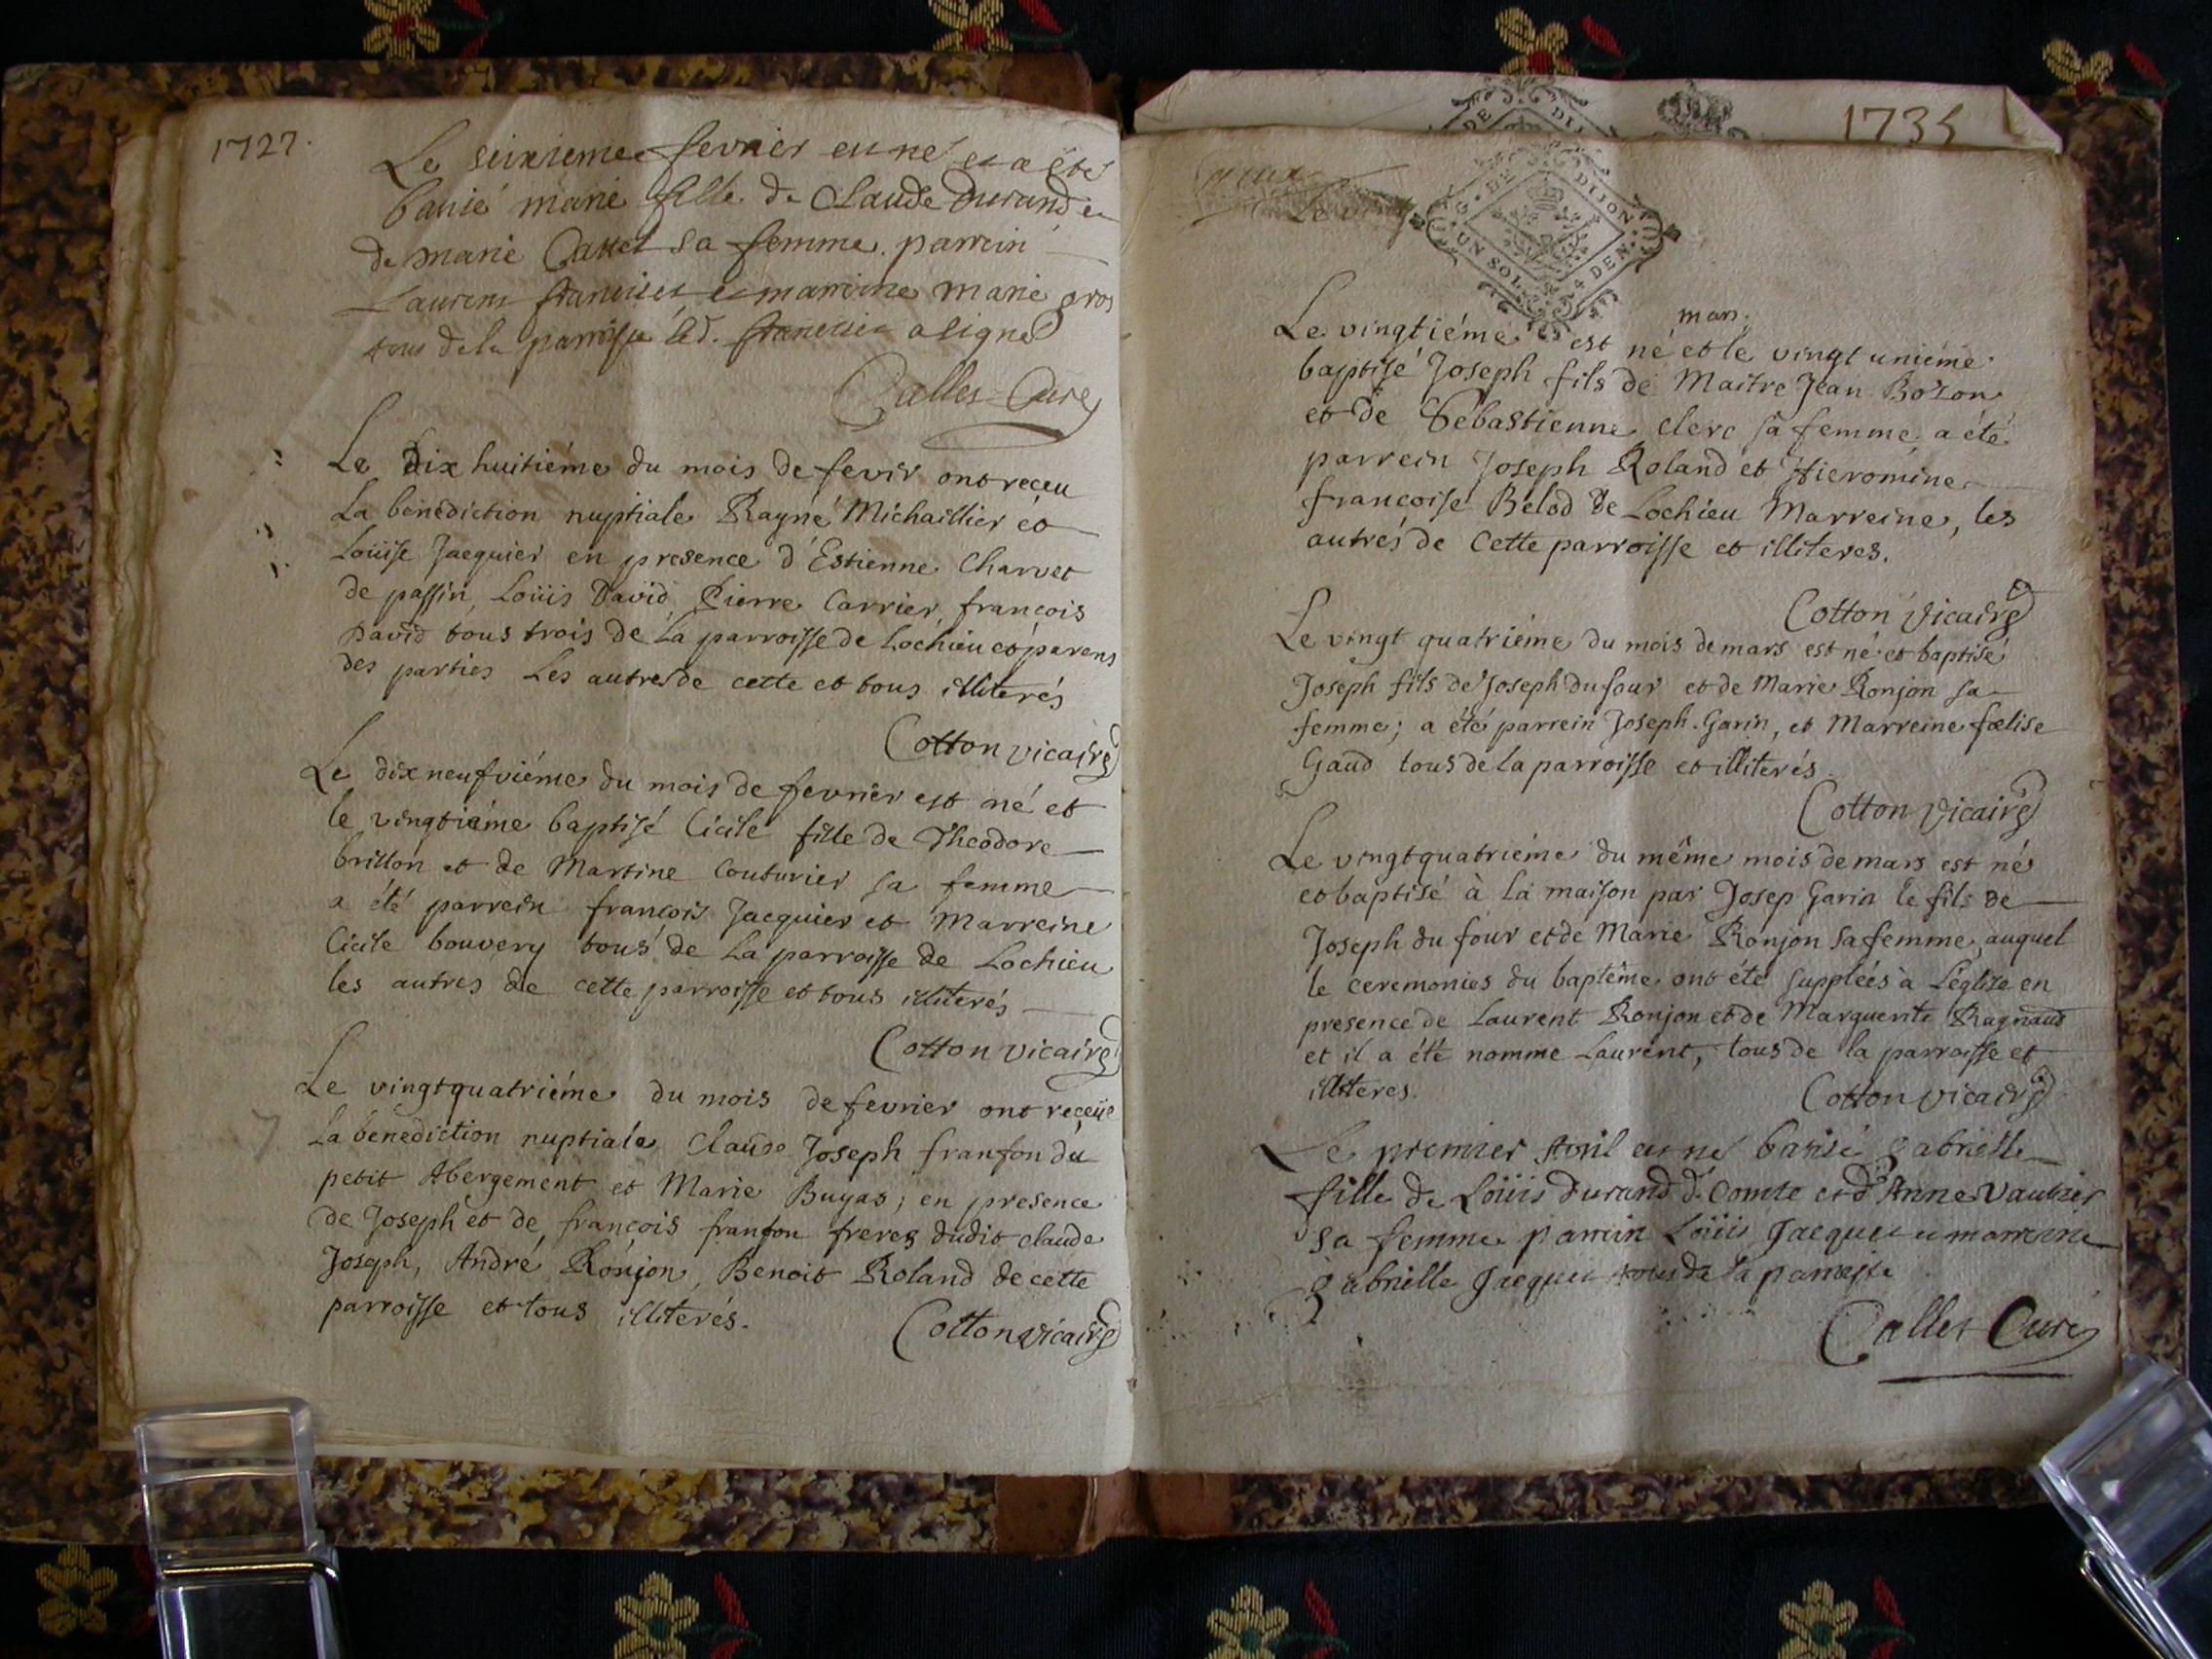 1727.
Le seixieme fevrier est né et a été
batisé marie fille de Claude Durand et
de marie sa femme. parrein
Laurens et marreine marie gros
tous de la parroisse led. a signé
Callet Curé
Le Dix huitiéme du mois de fevir ont reçeu
La bénédiction nuptiale Rayné Michaillier et
Loüise Jacquier en presence d'Estienne Charvet
de passin, Loüis David, Pierre Carrier, françois
David tous trois de La parroisse de Lochieu et parens
des parties Les autres de cette et tous illiterés
Cotton vicaire
Le dixneufviéme du mois de fevrier est né et
le vingtiéme baptisé Cicile fille de Theodore
brillon et de Martine Couturier sa femme
a été parrein françois Jacquier et Marreine
Cicile bouvery tous de La parroisse de Lochieu
les autres de cette parroisse et tous illiterés
Cotton vicaire
Le vingtquatriéme du mois de fevrier ont reçeüe
La benediction nuptiale Claude Joseph franfon du
petit Abergement et Marie Buyas; en presence
de Joseph et de françois franfon freres dudit claude
Joseph, André Ronjon, Benoit Roland de cette
parroisse et tous illiterés.
Cotton vicaire
1735
DE DIJ
G. DE DIJON
UN SOL 4 DEN
Le ving
mars.
Le vingtiéme est né et le vingt uniéme
baptisé Joseph fils de Maitre Jean Bozon
et de Sebastienne clerc sa femme a été
parrein Joseph Roland et Hieromine
francoise Belod de Lochieu Marreine, les
autres de Cette parroisse et illiteres.
Cotton Vicaire
Le vingt quatriéme du mois de mars est né et baptisé
Joseph fils de Joseph du four et de Marie Ronjon sa
femme; a été parrein Joseph Garin, et Marreine fœlise
Gaud tous de la parroisse et illiterés
Cotton Vicaire
Le vingtquatriéme du même mois de mars est né
et baptisé à la maison par Josep Garin le fils de
Joseph du four et de Marie Ronjon sa femme, auquel
le ceremonies du baptême ont été supplées à L'églize en
presence de Laurent Ronjon et de Marguerite Ragnaud
et il a été nomme Laurent, tous de la parroisse et
illiteres.
Cotton vicaire
Le premier Avril est né batisé gabrielle
fille de Loüis durand d. Comte et d'Anne Vautier
sa femme parrein Loüis Jacquet et marreine
gabrielle Jacquet tous de la parroisse
Callet Curé